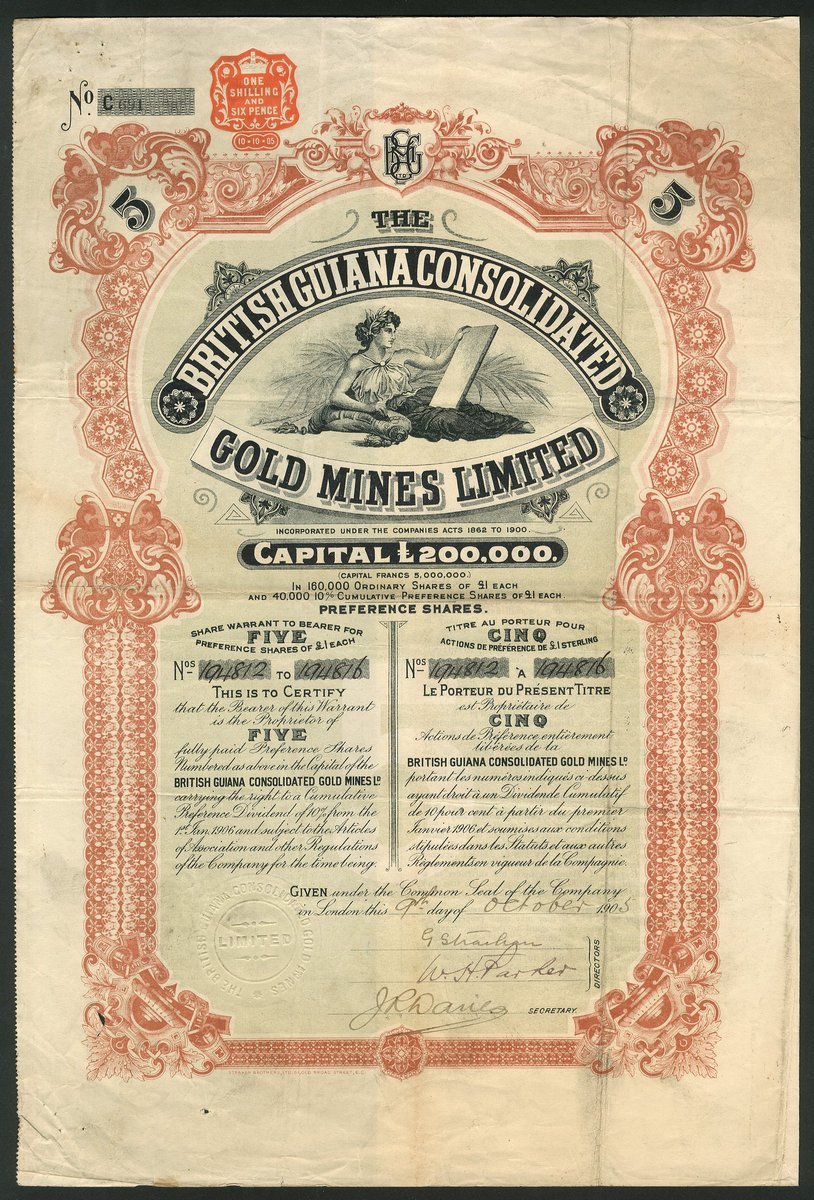 No. C 691
ONE
SHILLING
AND
SIX PENCE
10•10•05
LTD
5
5
THE
BRITISH GUIANA CONSOLIDATED
GOLD MINES LIMITED
INCORPORATED UNDER THE COMPANIES ACTS 1862 TO 1900.
CAPITAL £200,000.
(CAPITAL FRANCS 5,000,000.)
IN 160,000 ORDINARY SHARES OF £1 EACH
AND 40,000 10% CUMULATIVE PREFERENCE SHARES OF £1 EACH.
PREFERENCE SHARES.
SHARE WARRANT TO BEARER FOR
FIVE
PREFERENCE SHARES OF £1 EACH
Nos 194812 TO 194816
THIS IS TO CERTIFY
that the Bearer of this Warrant
is the Proprietor of
FIVE
fully paid Preference Shares
Numbered as above in the Capital of the
BRITISH GUIANA CONSOLIDATED GOLD MINES LD
carrying the right to a Cumulative
Preference Dividend of 10% from the
1st Jan. 1906 and subject to the Articles
of Association and other Regulations
of the Company for the time being.
TITRE AU PORTEUR POUR
CINQ
ACTIONS DE PRÉFÉRENCE DE £1 STERLING
Nos 194812 À 194816
LE PORTEUR DU PRÉSENT TITRE
est Propriétaire de
CINQ
Actions de Préférence, entièrement
libérées de la
BRITISH GUIANA CONSOLIDATED GOLD MINES LD
portant les numéros indiqués ci-dessus
ayant droit à un Dividende Cumulatif
de 10 pour cent à partir du premier
Janvier 1906, et soumises aux conditions
stipulées dans les Statuts et aux autres
Reglements en vigueur de la Compagnie.
GIVEN under the Common Seal of the Company
in London this 9th day of October 1905
THE BRITISH GUIANA CONSOLIDATED GOLD MINES
LIMITED
G Strachan
W. H. Parker
DIRECTORS
J R Davies
SECRETARY.
BROTHERS, LTD. OLD BROAD STREET, E.C.